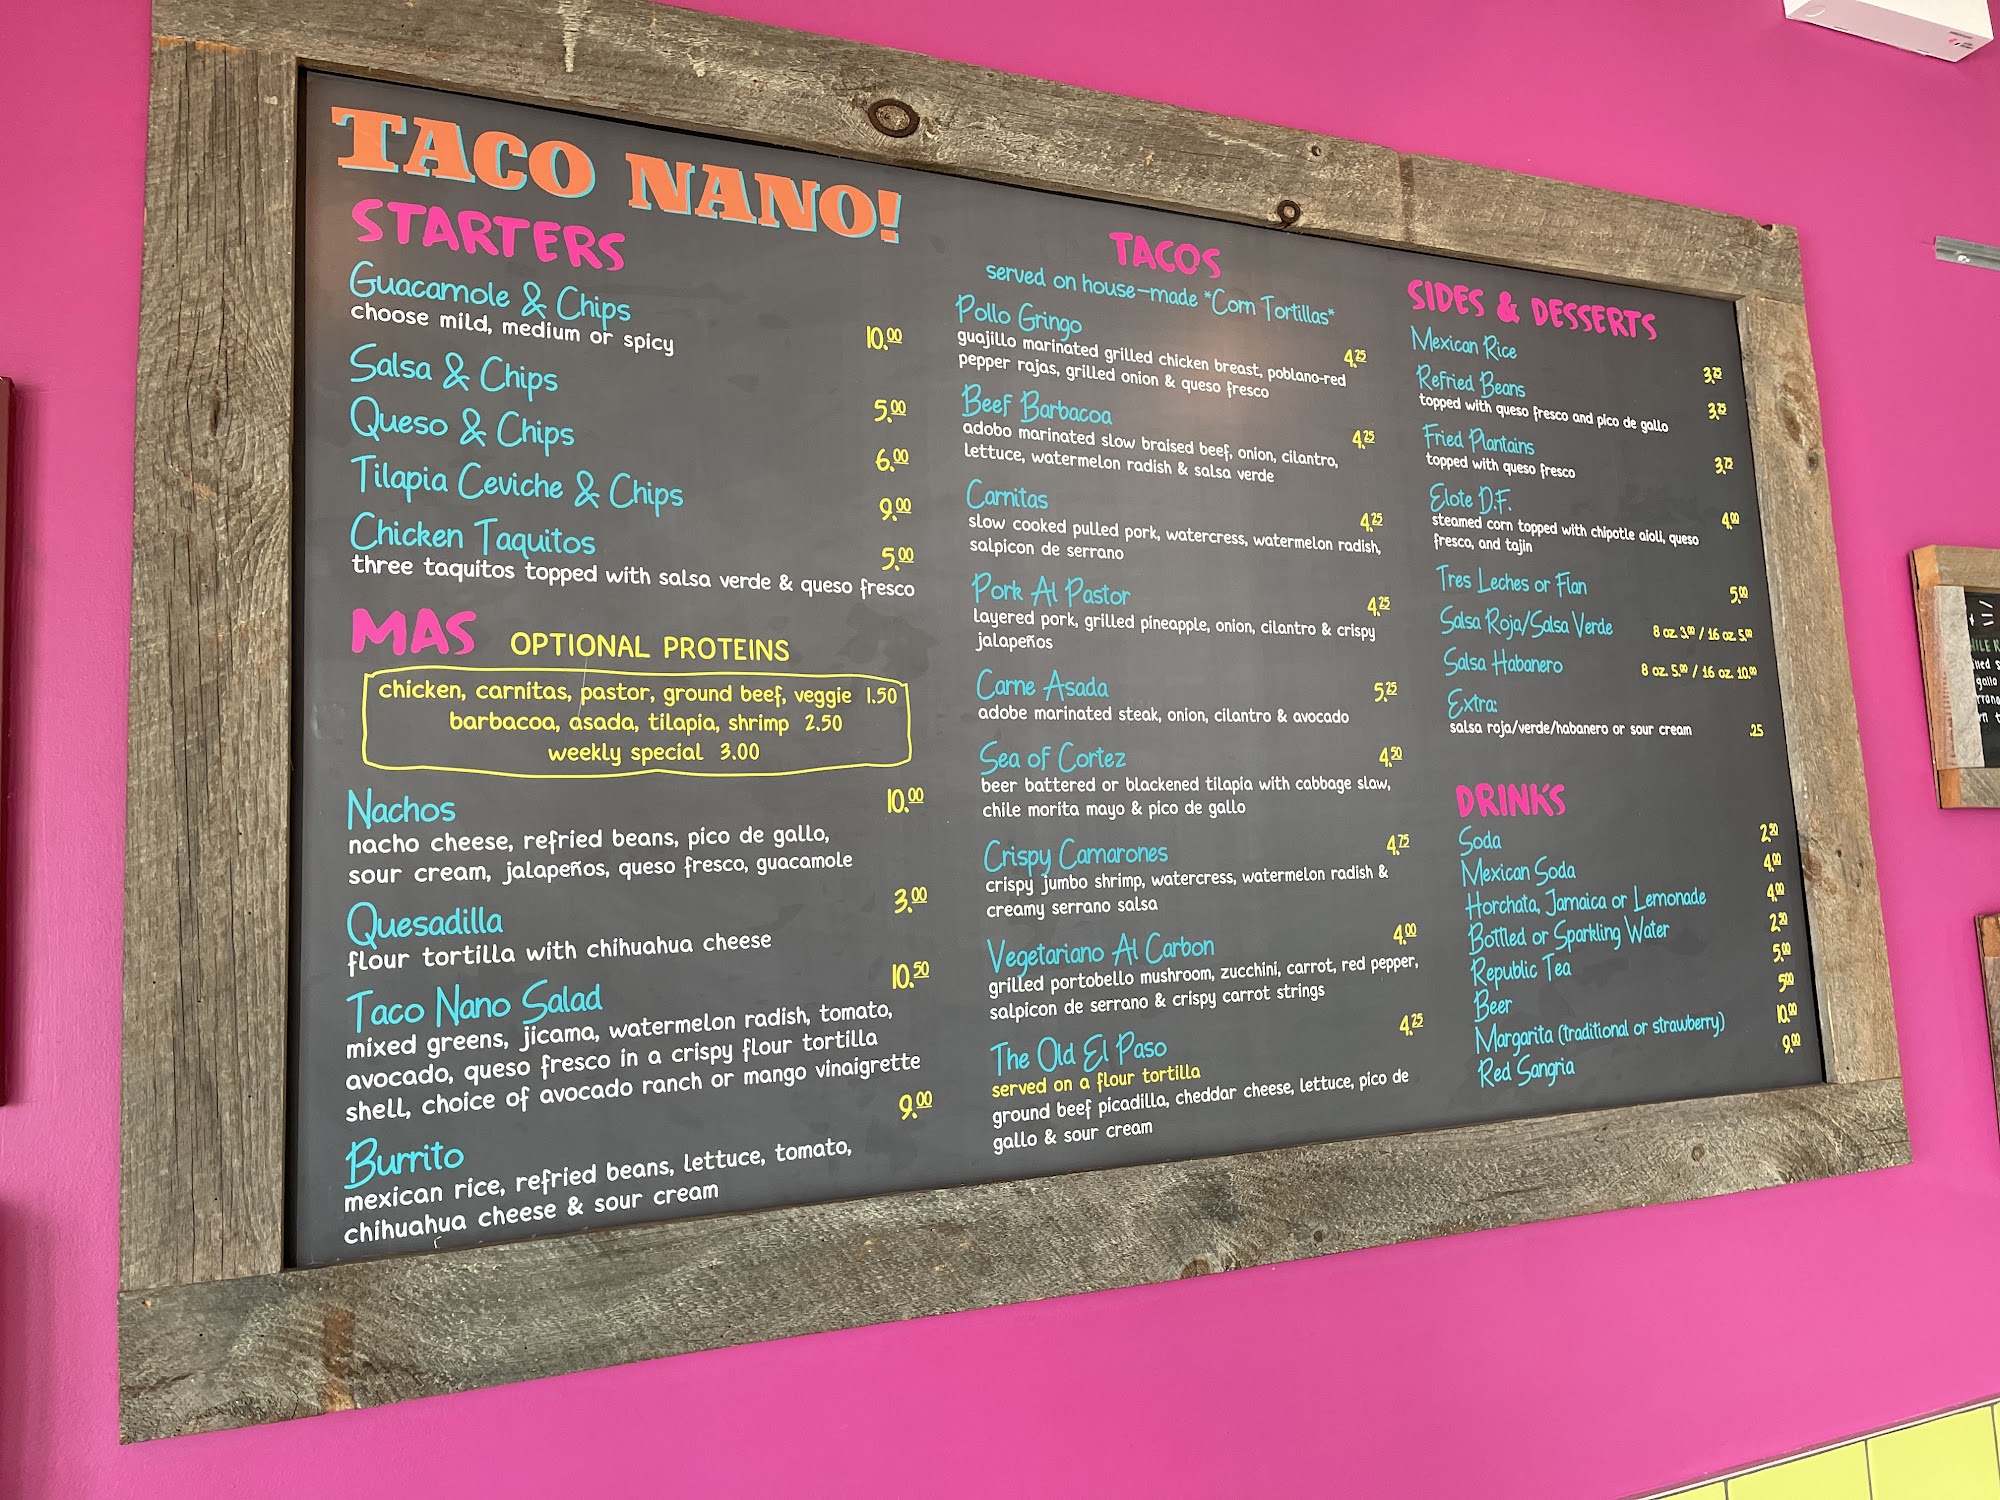 TACO NANO!
STARTERS
Guacamole & Chips
choose mild, medium or spicy
10.00
Salsa & Chips
5.00
Queso & Chips
6.00
Tilapia Ceviche & Chips
9.00
Chicken Taquitos
5.00
three taquitos topped with salsa verde & queso fresco
MAS OPTIONAL PROTEINS
chicken, carnitas, pastor, ground beef, veggie 1.50
barbacoa, asada, tilapia, shrimp 2.50
weekly special 3.00
Nachos 10.00
nacho cheese, refried beans, pico de gallo,
sour cream, jalapeños, queso fresco, guacamole
Quesadilla 3.00
flour tortilla with chihuahua cheese
Taco Nano Salad 10.50
mixed greens, jicama, watermelon radish, tomato,
avocado, queso fresco in a crispy flour tortilla
shell, choice of avocado ranch or mango vinaigrette
Burrito 9.00
mexican rice, refried beans, lettuce, tomato,
chihuahua cheese & sour cream
TACOS
served on house-made *Corn Tortillas*
Pollo Gringo 4.25
guajillo marinated grilled chicken breast, poblano-red
pepper rajas, grilled onion & queso fresco
Beef Barbacoa 4.25
adobo marinated slow braised beef, onion, cilantro,
lettuce, watermelon radish & salsa verde
Carnitas 4.25
slow cooked pulled pork, watercress, watermelon radish,
salpicon de serrano
Pork Al Pastor 4.25
layered pork, grilled pineapple, onion, cilantro & crispy
jalapeños
Carne Asada 5.25
adobe marinated steak, onion, cilantro & avocado
Sea of Cortez 4.50
beer battered or blackened tilapia with cabbage slaw,
chile morita mayo & pico de gallo
Crispy Camarones 4.75
crispy jumbo shrimp, watercress, watermelon radish &
creamy serrano salsa
Vegetariano Al Carbon 4.00
grilled portobello mushroom, zucchini, carrot, red pepper,
salpicon de serrano & crispy carrot strings
The Old El Paso 4.25
served on a flour tortilla
ground beef picadilla, cheddar cheese, lettuce, pico de
gallo & sour cream
SIDES & DESSERTS
Mexican Rice 3.25
Refried Beans 3.25
topped with queso fresco and pico de gallo
Fried Plantains 3.75
topped with queso fresco
Elote D.F. 4.00
steamed corn topped with chipotle aioli, queso
fresco, and tajin
Tres Leches or Flan 5.00
Salsa Roja/Salsa Verde 8 oz. 3.00 / 16 oz. 5.00
Salsa Habanero 8 oz. 5.00 / 16 oz. 10.00
Extra:
salsa roja/verde/habanero or sour cream .25
DRINKS
Soda 2.50
Mexican Soda 4.00
Horchata, Jamaica or Lemonade 4.00
Bottled or Sparkling Water 2.50
Republic Tea 5.00
Beer 5.00
Margarita (traditional or strawberry) 10.00
Red Sangria 9.00
gallo